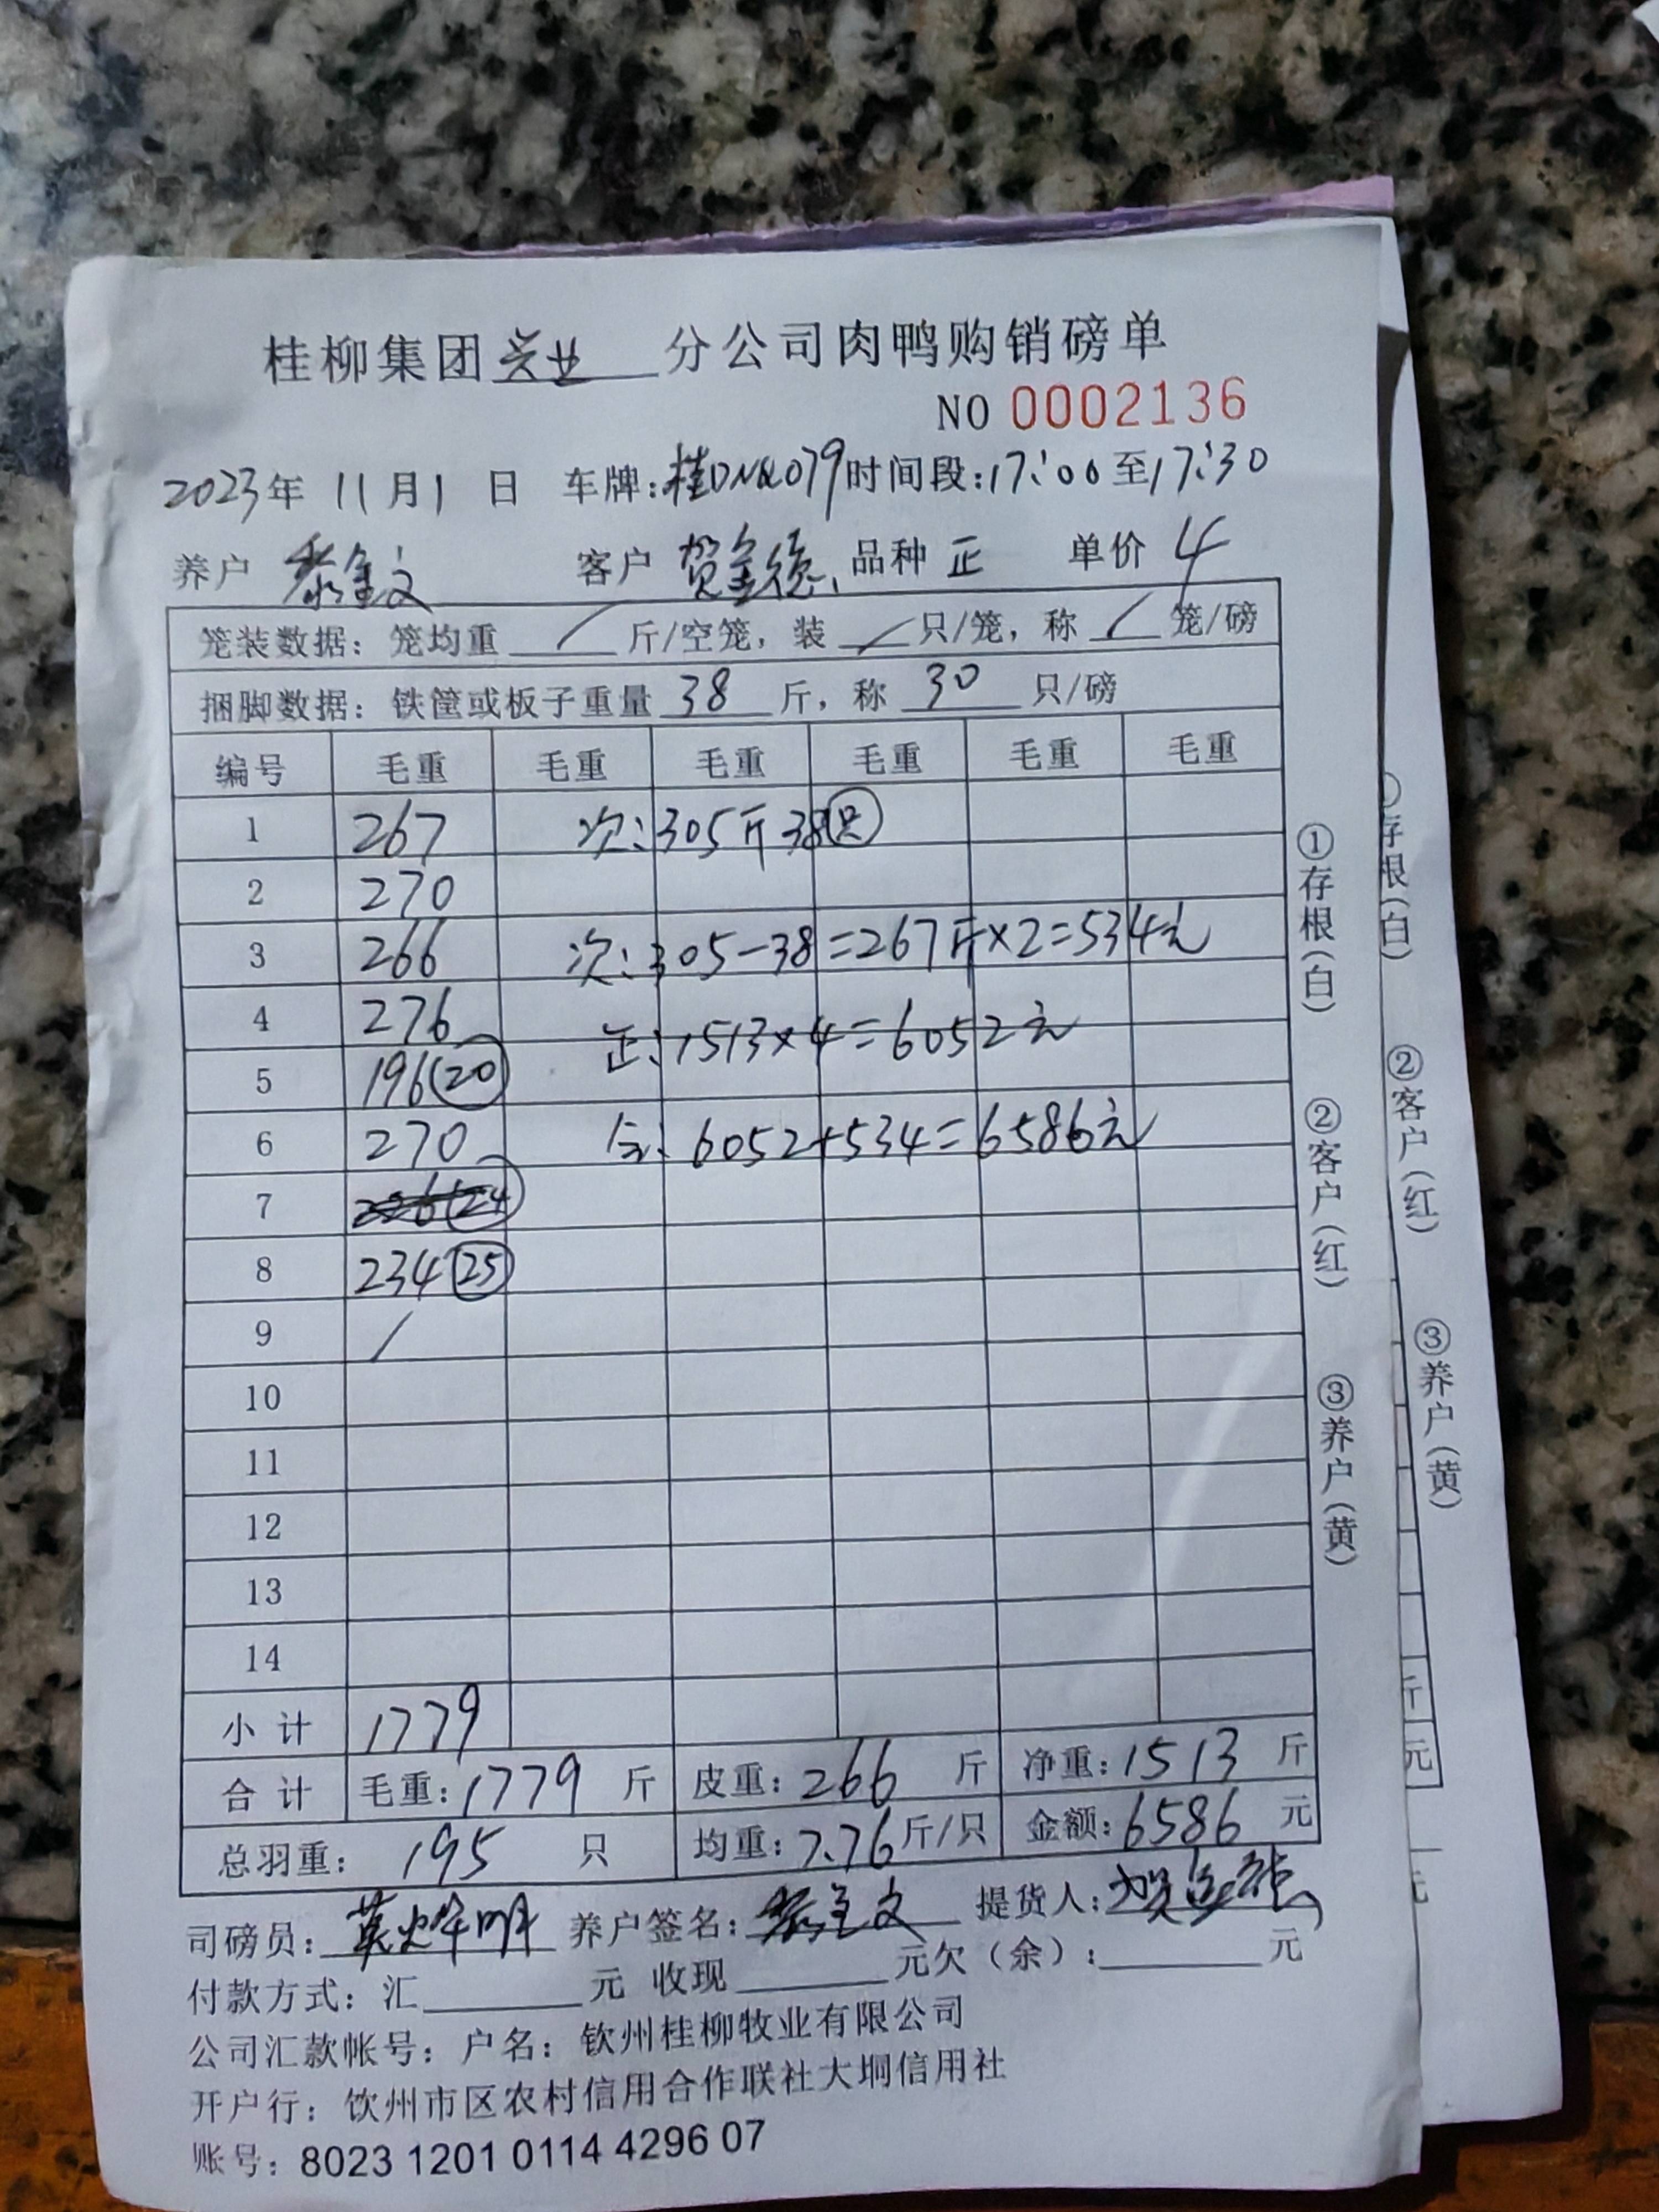 桂柳集团兴业分公司肉鸭购销磅单
NO 0002136
2023年 11月1日 车牌:桂DNQ079时间段:17:00至17:30
养户 金文 客户 贺金德 品种 正 单价 4
笼装数据: 笼均重 / 斤/空笼, 装 / 只/笼, 称 / 笼/磅
捆脚数据: 铁筐或板子重量 38 斤, 称 30 只/磅
编号 毛重 毛重 毛重 毛重 毛重 毛重
1 267 次:305斤38只
2 270
3 266 次:305-38=267斤×2=534元
4 276 正:1513×4=6052元
5 196(20)
6 270 合:6052+534=6586元
7
8 234(25)
9 /
10
11
12
13
14
小计 1779
合计 毛重:1779斤 皮重:266斤 净重:1513斤
总羽重: 195 只 均重:7.76斤/只 金额:6586元
司磅员: 养户签名: 金文 提货人:贺金德
付款方式: 汇 元 收现 元欠(余): 元
公司汇款帐号: 户名: 钦州桂柳牧业有限公司
开户行: 钦州市区农村信用合作联社大垌信用社
账号: 8023 1201 0114 4296 07
①存根(白) ②客户(红) ③养户(黄)
①存根(白) ②客户(红) ③养户(黄)
斤
元
元